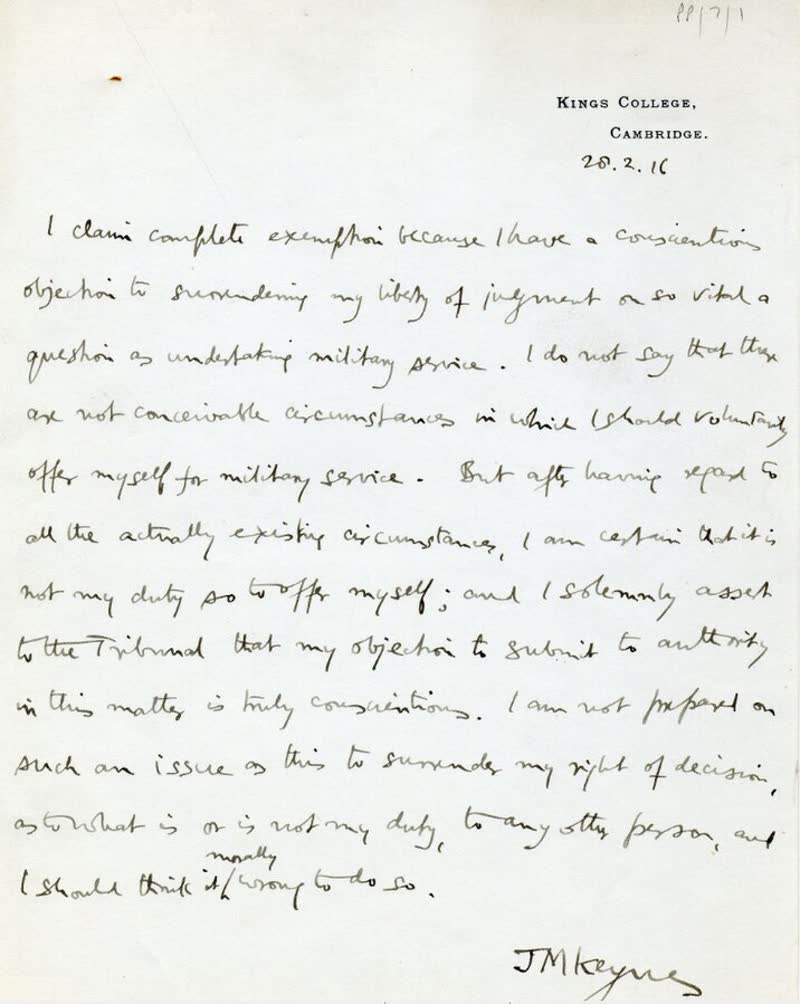 PP/7/1
KINGS COLLEGE,
CAMBRIDGE.
28.2.16
I claim complete exemption because I have a conscientious
objection to surrendering my liberty of judgment on so vital a
question as undertaking military service. I do not say that there
are not conceivable circumstances in which I should voluntarily
offer myself for military service. But after having regard to
all the actually existing circumstances, I am certain that it is
not my duty so to offer myself; and I solemnly assert
to the Tribunal that my objection to submit to authority
in this matter is truly conscientious. I am not prepared on
such an issue as this to surrender my right of decision,
as to what is or is not my duty, to any other person, and
I should think it morally wrong to do so.
JMKeynes